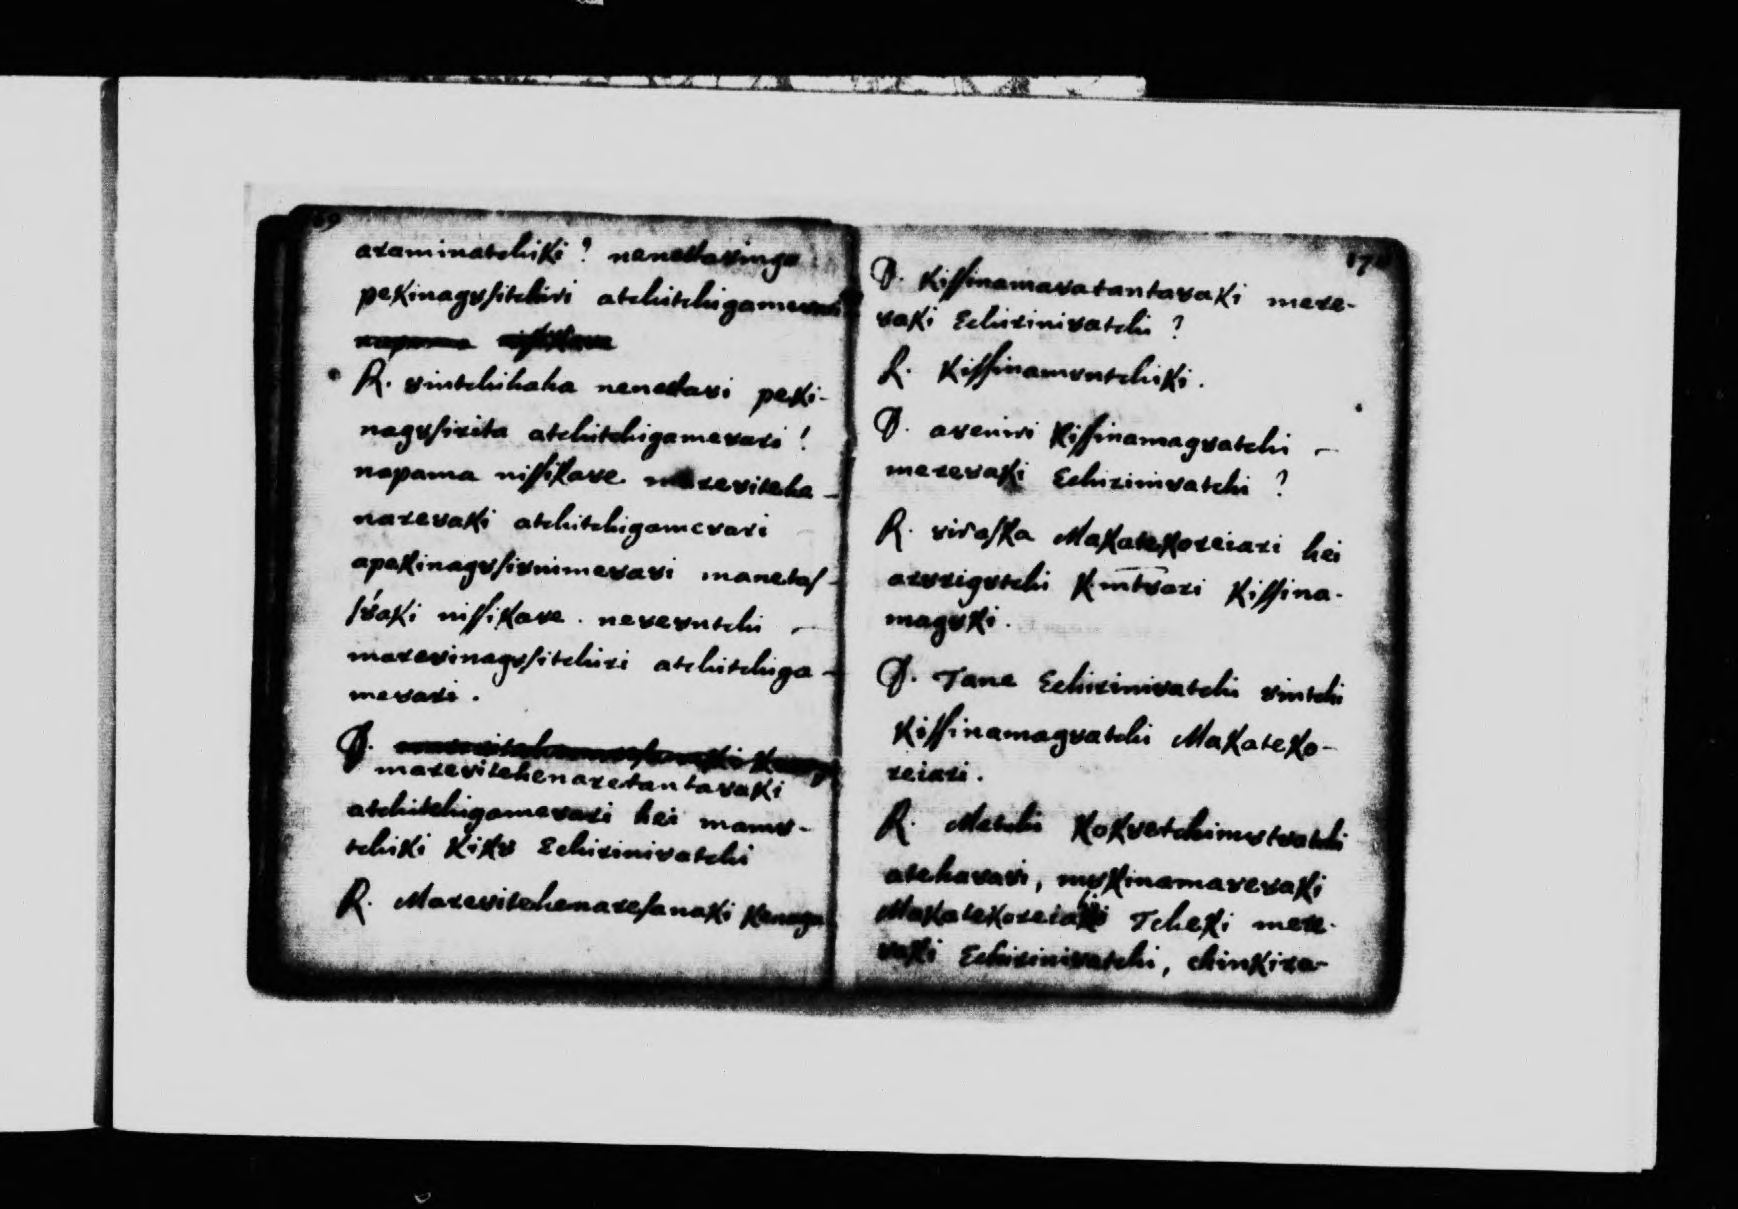 169
araminatchiki? nenedasinga
pekinagȣsitchiȣi atchitchigameȣari
R. ȣintchihaha nenedaȣi peki-
nagȣsirita atchitchigameȣari!
napama nissikaȣe. mareȣiteha-
nareȣaki atchitchigameȣari
apekinagȣsiȣnimeȣari manetas-
sȣ́aki nissikaȣe. neȣeȣntchi -
mareȣinagȣsitchiri atchitchiga-
meȣari.
Q.
mareȣitehenaretantaȣaki
atchitchigameȣari hei mamȣ-
tchiki Kikȣ Echiriniȣatchi
R. Mareȣitehenaresanaki Kenaga
170
Q. Kissinamaȣatantaȣaki mere-
ȣaki Echiriniȣatchi?
R. Kissinamȣntchiki.
Q. aȣeniȣi Kissinamagȣatchi -
mereȣaki Echiriniȣatchi?
R. ȣiraska Makatekoreiari hei
arȣrigȣtchi Kimtȣari Kissina-
magȣki.
Q. Tane Echiriniȣatchi ȣintchi
Kissinamagȣatchi Makateko-
reiari.
R. Metchi Kokȣetchimȣtȣatchi
atehaȣaȣi, mȣkinamaȣeȣaki
Tcheki mere-
ȣaki Echiriniȣatchi, chinkira-